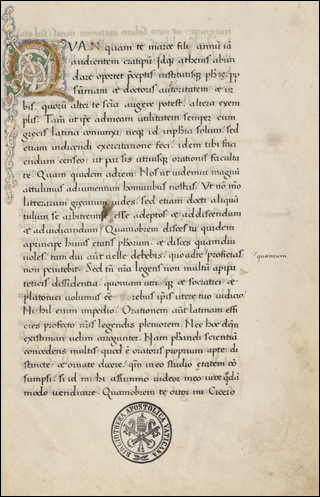 QVAN quam te marce fili annū iā
audientem cratipū idq; athenis abun
dare oportet pceptis institutisq;
sūmam & doctoris auctoritatem &
bis. quorū alter te scīa augere potest. altera exem
plis. Tam̄ ut ipē ad meam utilitatem semper cum
grecis latina coniunxi. neq; id in phīa solum. sed
etiam in dicendi exercitatione feci. idem tibi faci
endum censeo. ut par sis utriusq; orationis faculta
te. Quam quidem ad rem. Nos ut uidemur magnū
attulimus adiumentum hominibus nostris. Ut nō mō
litterarum grecarum rudes. sed etiam docti aliquā
tulum se arbitrentur esse adeptos & ad discendum
& ad iudicandum. Quamobrem disces tu quidem
a principe huius etatis phorum. & disces quamdiu
voles. tam diu aut uelle debebis. quoad te proficias
non penitebit. Sed tn̄ nrā legens non multū a peripa
teticis dissidentia. quoniam utriq; & socratici &
platonici volumus eē rebus ipsis utere tuo iudicio.
Nihil enim impedio. Orationem aūt latinam effi
cies profecto nrīs legendis pleniorem. Nec hoc
existimari uelim arroganter. Nam phandi scientiā
concedens multis quod ē oratoris proprium apte di
stincte & ornate dicere. qm̄ in eo studio etatem cō
sumpsi. si id mihi assummo uideor meo iure qdā
modo uendicare. Quamobrem te ortor mi Cicero
quantum
BIBLIOTHECA APOSTOLICA VATICANA